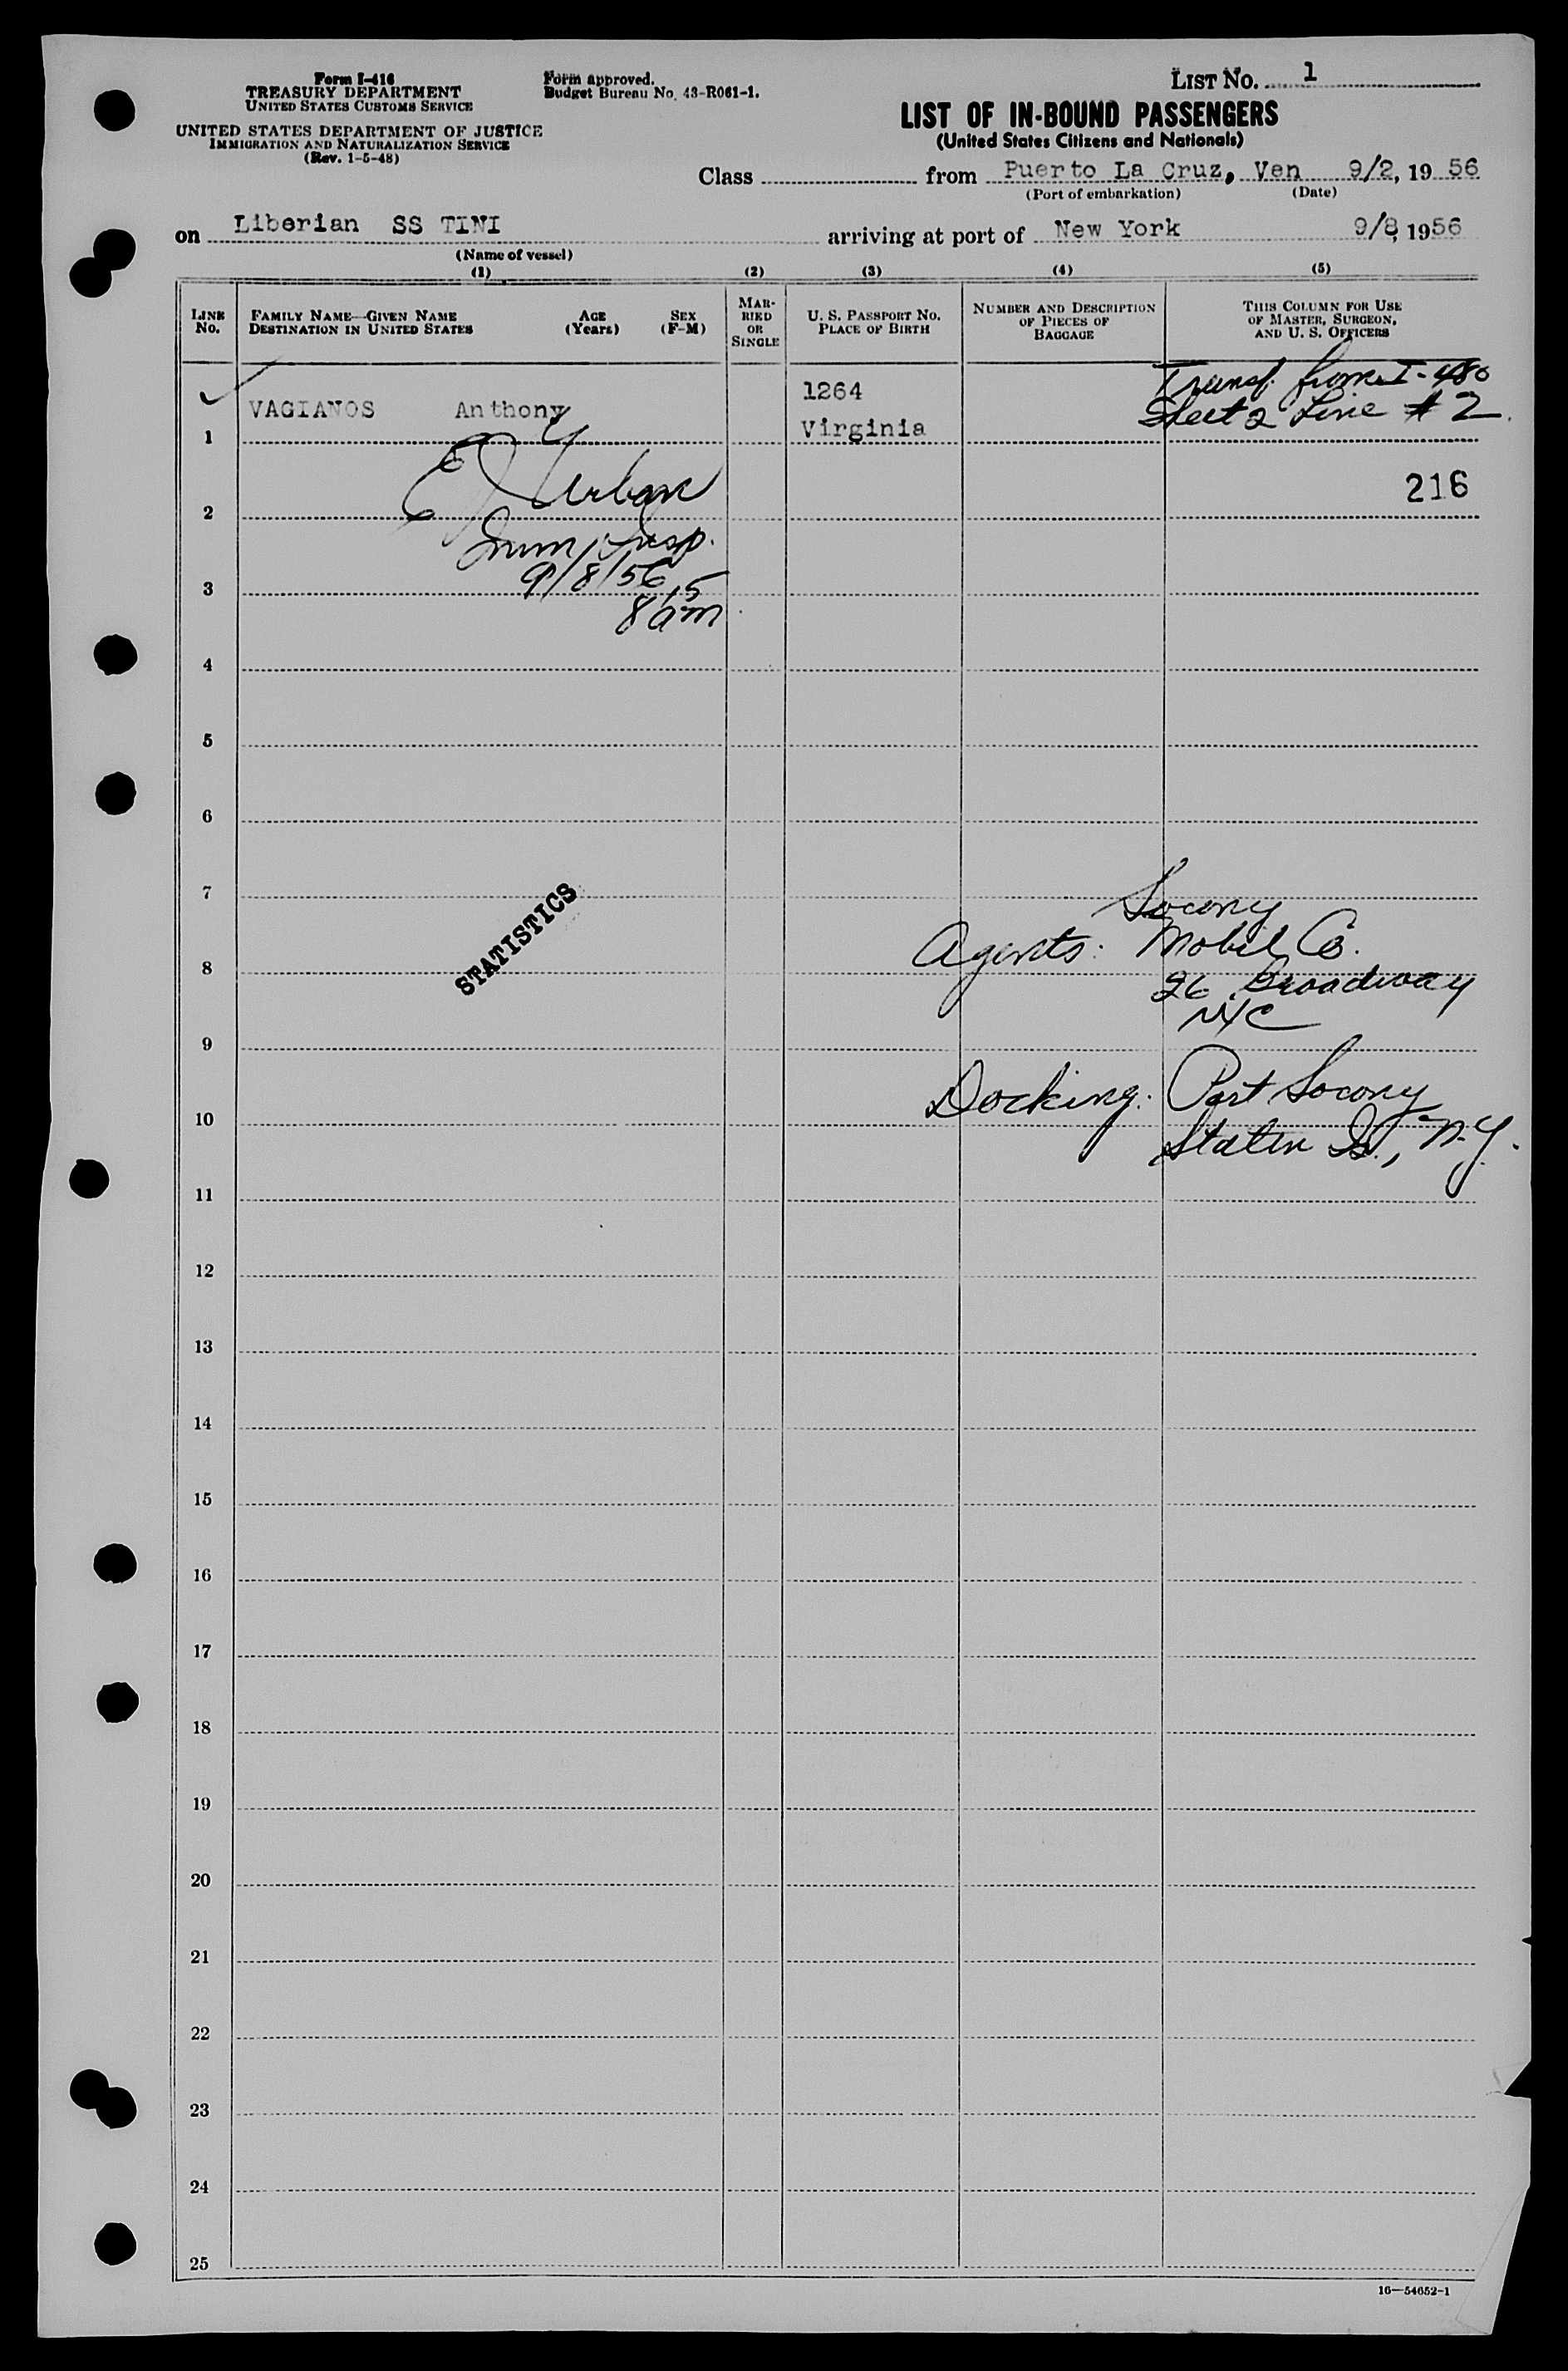 Form I-416
TREASURY DEPARTMENT
UNITED STATES CUSTOMS SERVICE
UNITED STATES DEPARTMENT OF JUSTICE
IMMIGRATION AND NATURALIZATION SERVICE
(Rev. 1-5-48)
Form approved.
Budget Bureau No. 43-R061-1.
LIST NO. 1
LIST OF IN-BOUND PASSENGERS
(United States Citizens and Nationals)
Class from Puerto La Cruz, Ven 9/2, 19 56
(Port of embarkation) (Date)
on Liberian SS TINI arriving at port of New York 9/8, 1956
(Name of vessel)
(1) (2) (3) (4) (5)
LINE No.
FAMILY NAME—GIVEN NAME AGE (Years) SEX (F-M)
DESTINATION IN UNITED STATES
MARRIED OR SINGLE
U. S. PASSPORT NO.
PLACE OF BIRTH
NUMBER AND DESCRIPTION
OF PIECES OF
BAGGAGE
THIS COLUMN FOR USE
OF MASTER, SURGEON,
AND U. S. OFFICERS
1 VAGIANOS Anthony
1264
Virginia
Transf. from I-480
Sheet 2 Line # 2.
E J Urban
2 216
Imm Insp.
9/8/56
3
8 15 am
4
5
6
7
STATISTICS
Socony
8 Agents: Mobil Co.
26 Broadway
NYC
9
10 Docking: Port Socony
Staten Is., N.Y.
11
12
13
14
15
16
17
18
19
20
21
22
23
24
25
16—54652-1